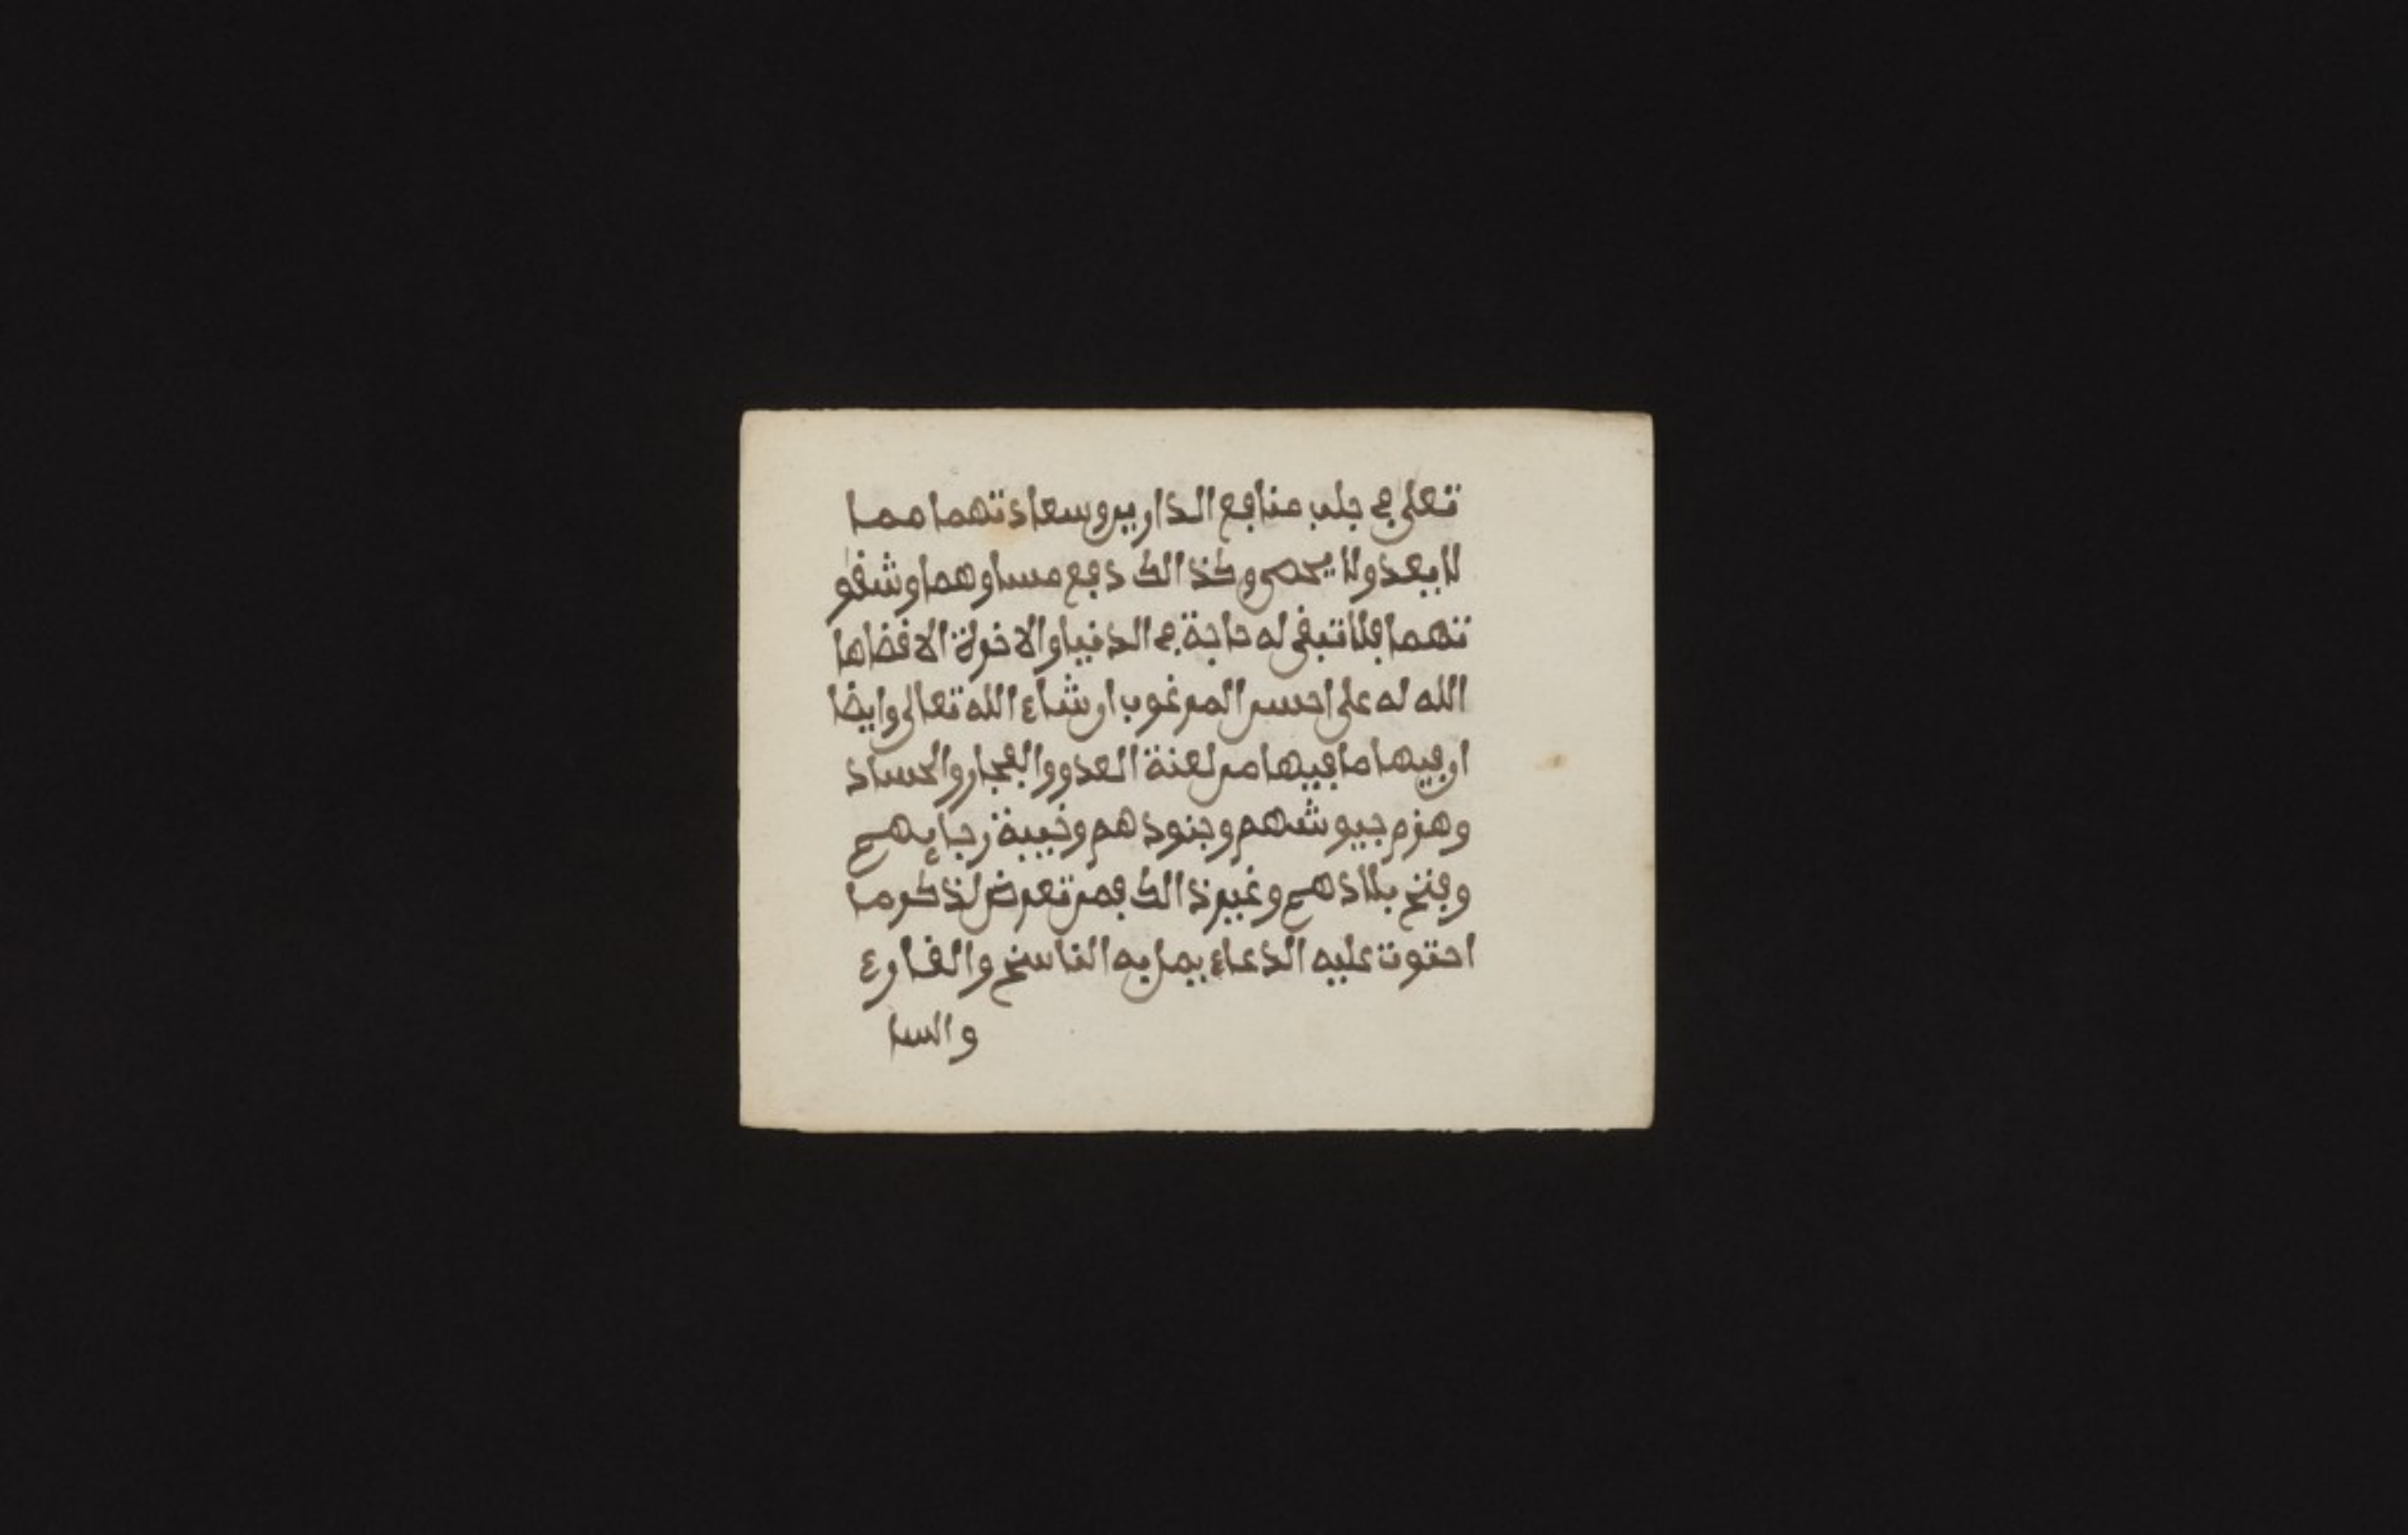 تعلى في جلب منافع الدارين وسعادتهما مما
لا يعد ولا يحصى وكذالك دفع مساوهما وشقو
تهما فلا تبقى له حاجة في الدنيا والاخرة الا قضاها
الله له على احسن المرغوب ان شاء الله تعالى وايضا
ان فيها ما فيها من لعنة العدو والفجار والحساد
وهزم جيوشهم وجنودهم وخيبة رجايهم
وفتح بلادهم وغير ذالك فمن تعرض لذكر ما
احتوت عليه الدعاء يمل به الناسخ والقارء
والسا